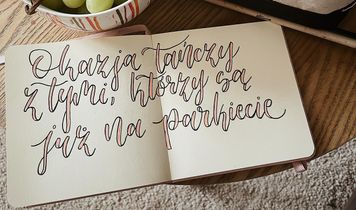 Okazja tańczy
z tymi, którzy są
już na parkiecie